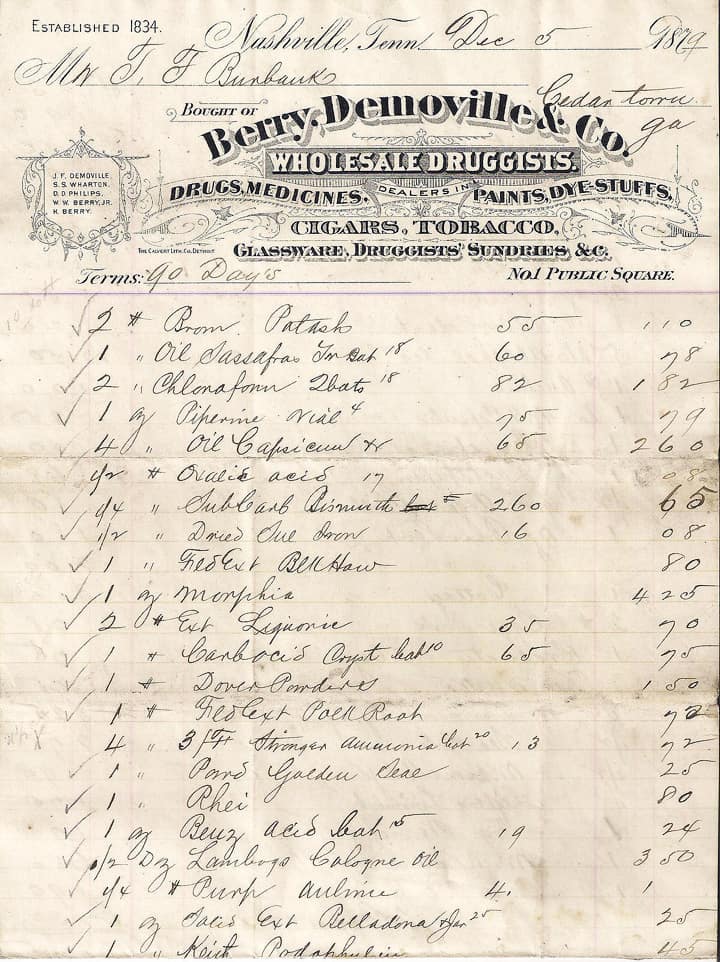 ESTABLISHED 1834.
Nashville, Tenn. Dec 5 1879
Mr T. F Burbank
Cedartown
Ga
BOUGHT OF
Berry, Demoville & Co.
WHOLESALE DRUGGISTS.
DRUGS, MEDICINES. DEALERS IN PAINTS, DYE-STUFFS,
CIGARS, TOBACCO,
GLASSWARE, DRUGGISTS' SUNDRIES, &C.
J. F. DEMOVILLE.
S. S. WHARTON.
D. D. PHILIPS.
W. W. BERRY, JR.
K. BERRY.
THE CALVERT LITH. CO. DETROIT
Terms: 90 Day's
NO. 1 PUBLIC SQUARE.
2 # Brom. Potash 55 1 10
1 " Oil Sassafras 18 60 78
2 " Chloroform 2 bots 18 82 1 82
1 oz Piperine vial 4 75 79
4 " Oil Capsicum 65 2 60
1/2 # Oxalic acid 17 08
1/4 " SubCarb Bismuth 260 65
1/2 " Dried Sul Iron 16 08
1 " Fld Ext Blk Haw 80
1 oz Morphia 4 25
2 # Ext Liquorice 35 70
1 # Carb acid Cryst bot 10 65 75
1 # Dover Powders 1 50
1 # Fld Ext Polk Root 72
4 " 3/F Stronger Ammonia bot 20 13 72
1 " Powd Golden Seal 25
1 " Rhei 80
1 oz Benz acid bot 5 19 24
1/2 Dz Cologne Oil 3 50
1/4 # Purp Aniline 4. 1
1 oz Solid Ext Belladona & Jar 25 25
1 " Keith Podophylin 45